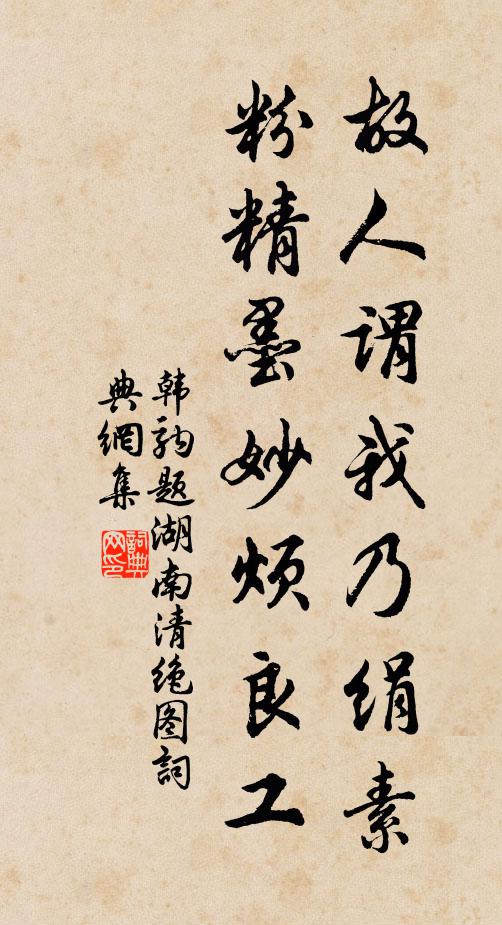 故人谓我乃绢素
粉精墨妙烦良工
韩驹题湖南清绝图词
典网集
词典
网印